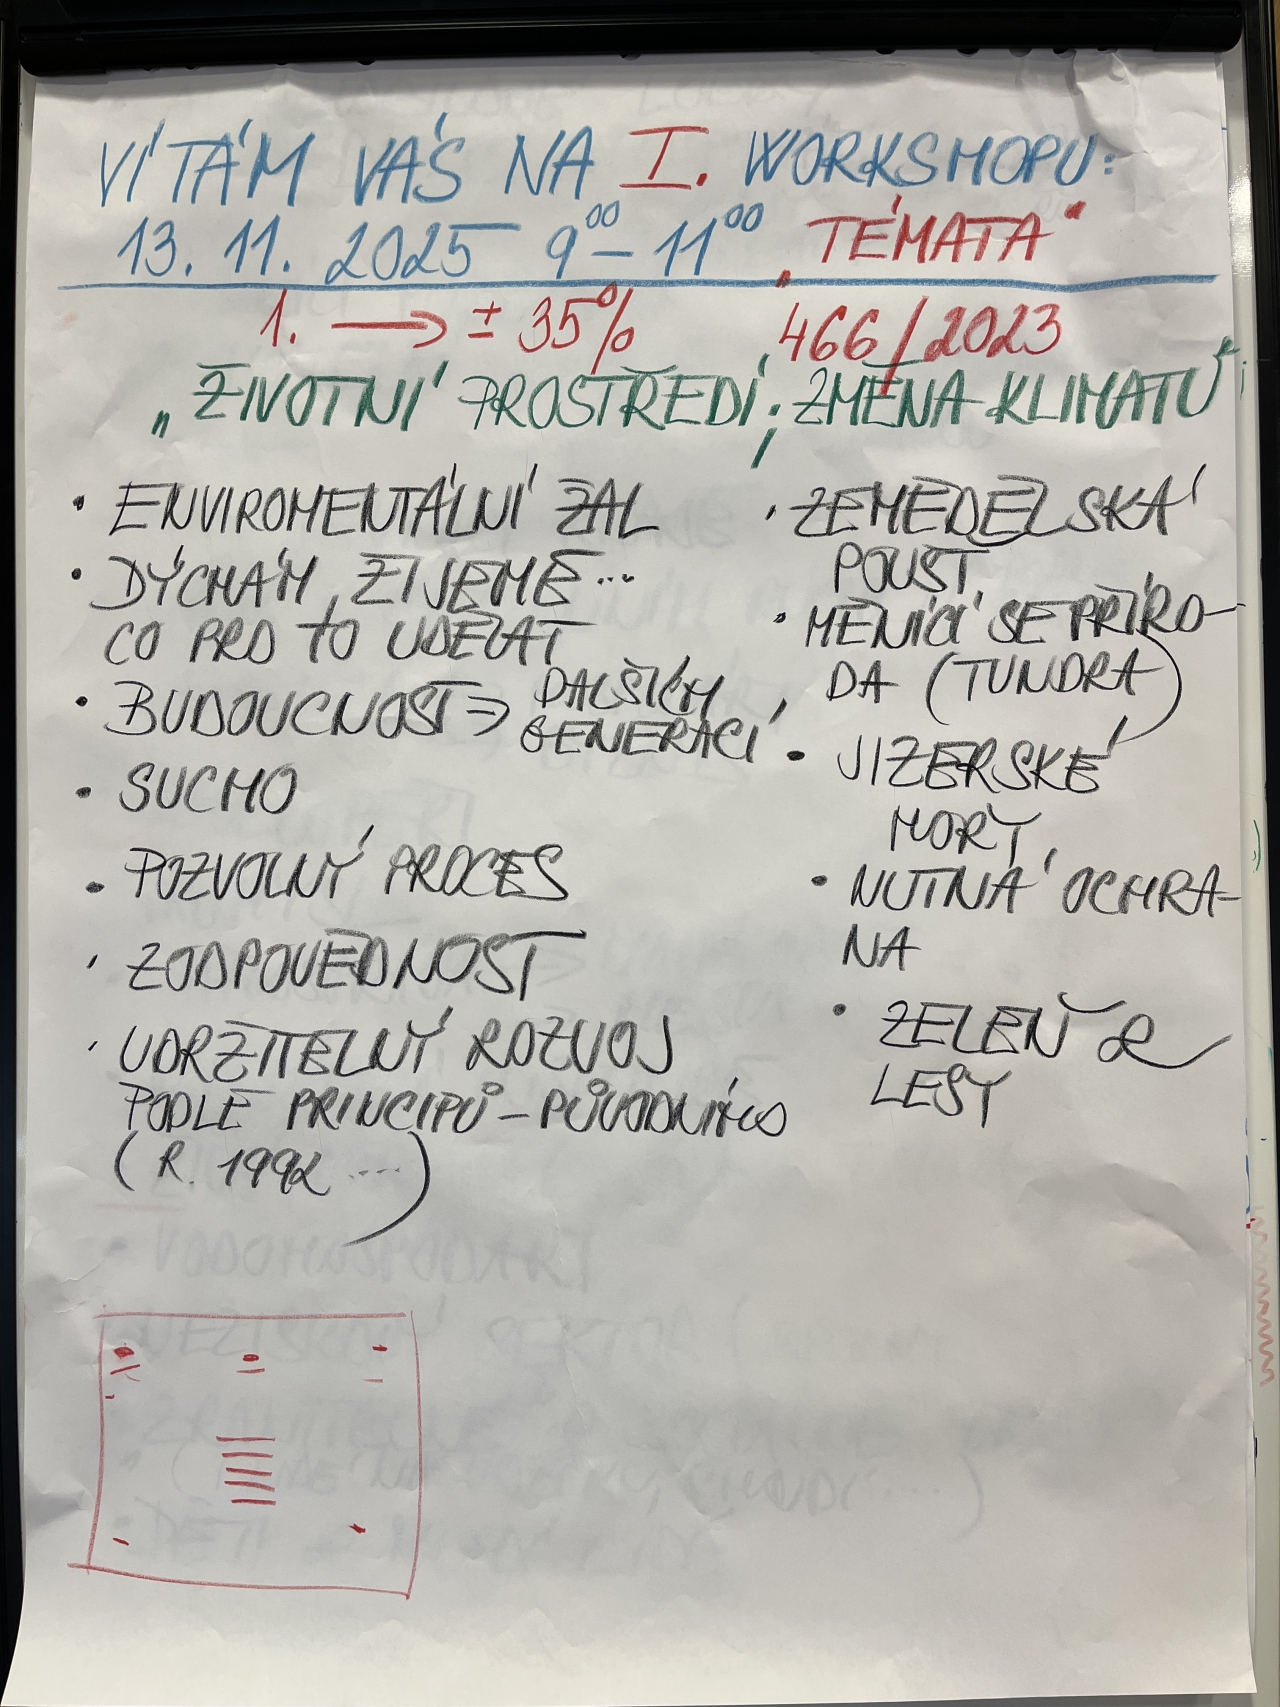 VÍTÁM VÁS NA I. WORKSHOPU:
13. 11. 2025 9⁰⁰ – 11⁰⁰ „TÉMATA“
1. → ± 35% 466/2023
„ŽIVOTNÍ PROSTŘEDÍ; ZMĚNA KLIMATU“
• ENVIROMENTÁLNÍ ŽAL
• DÝCHÁM, ŽIJEME...
CO PRO TO UDĚLAT
• BUDOUCNOST ⇒ DALŠÍCH
GENERACÍ
• SUCHO
• POZVOLNÝ PROCES
• ZODPOVĚDNOST
• UDRŽITELNÝ ROZVOJ
PODLE PRINCIPŮ – PŮVODNÍHO
(R. 1992 ....)
• ZEMĚDĚLSKÁ
POUŠŤ
• MĚNÍCÍ SE PŘÍRO-
DA (TUNDRA)
• JIZERSKÉ
HORY
• NUTNÁ OCHRA-
NA
• ZELEŇ &
LESY